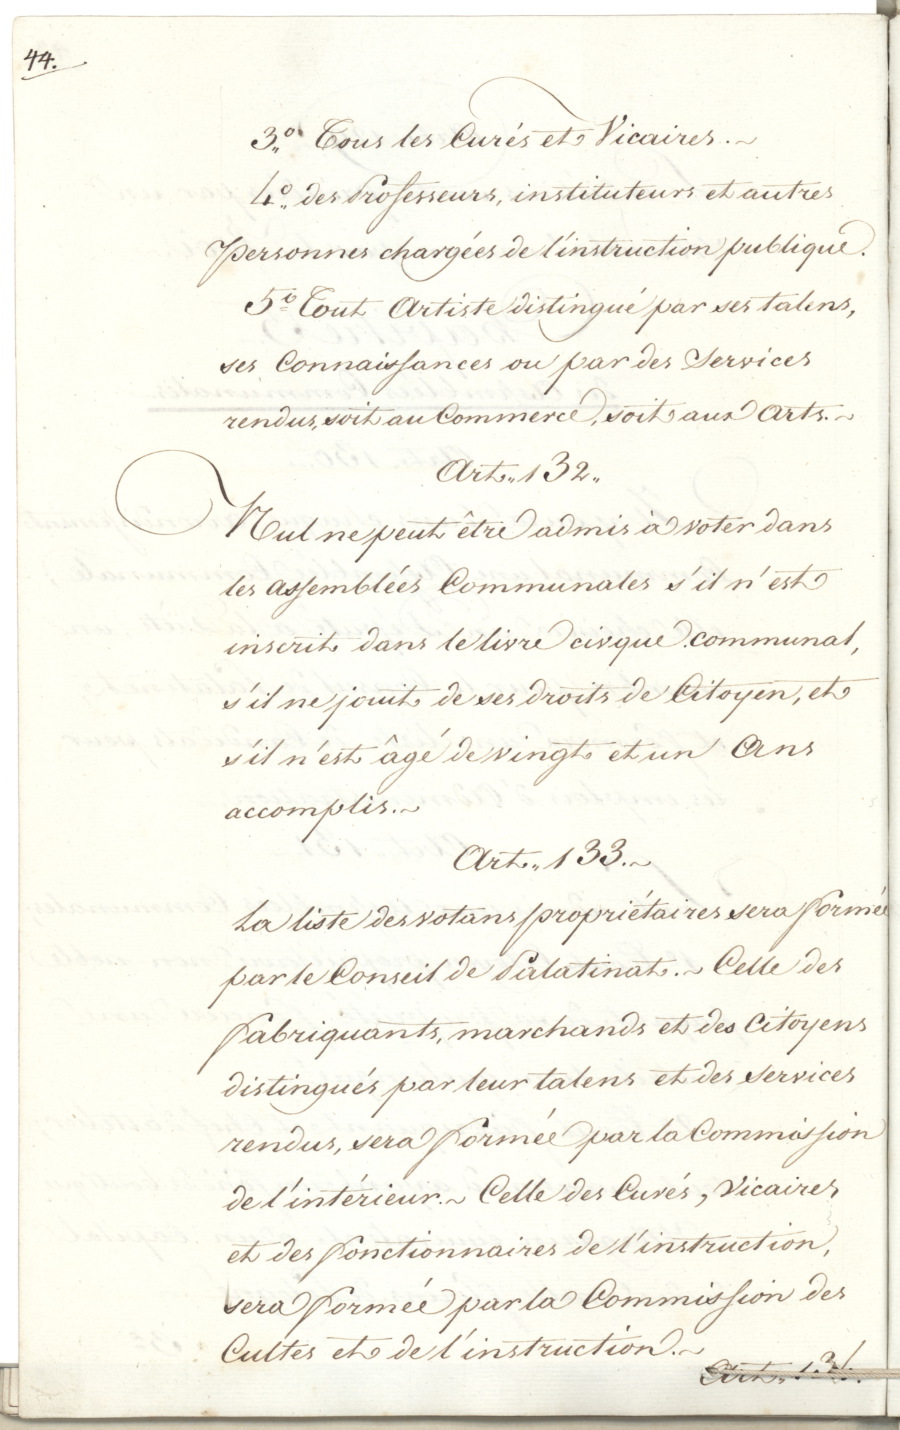 44.
3.° Tous les Curés et Vicaires.~
4.° des Professeurs, instituteurs et autres
Personnes chargées de l'instruction publique.
5.° Tout Artiste distingué par ses talens,
ses Connaissances ou par des Services
rendus, soit au Commerce, soit aux Arts.~
Art. 132.
Nul ne peut être admis à voter dans
les assemblées Communales s'il n'est
inscrit dans le livre civque communal,
s'il ne jouit de ses droits de Citoyen, et
s'il n'est âgé de vingt et un Ans
accomplis.~
Art. 133.~
La liste des votans propriétaires sera formée
par le Conseil de Palatinat.~ Celle des
fabriquants, marchands et des Citoyens
distingués par leur talens et des services
rendus, sera formée par la Commission
de l'intérieur.~ Celle des Curés, Vicaires
et des fonctionnaires de l'instruction,
sera formée par la Commission des
Cultes et de l'instruction.~
Art. 134.